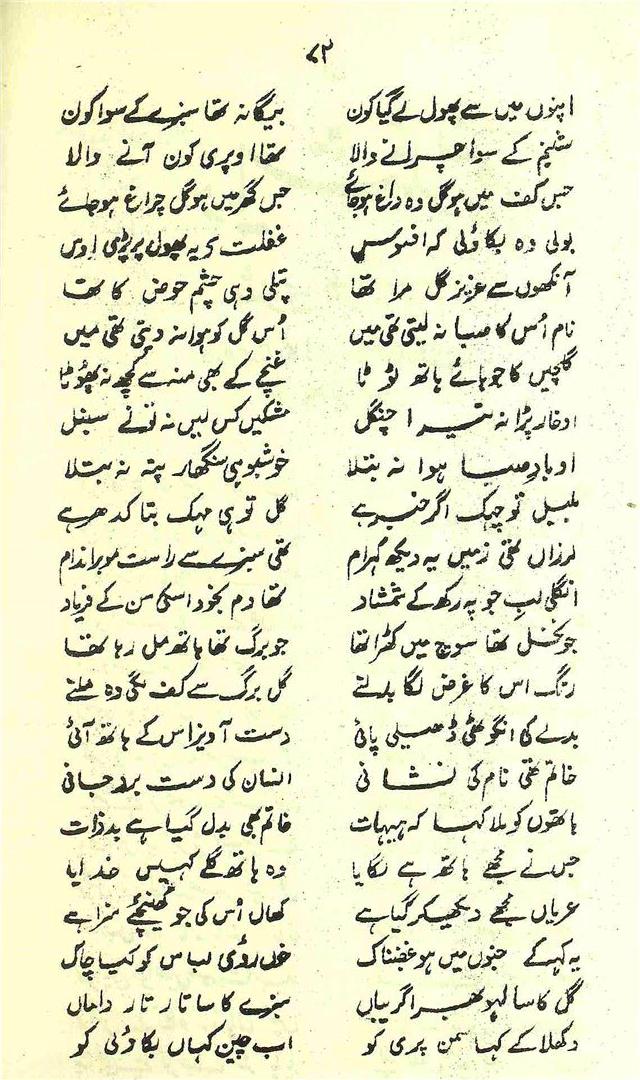 ۷۲
اپنوں میں سے پھول لے گیا کون بیگانہ تھا سبزے کے سوا کون
شبنم کے سوا چرانے والا تھا اوپری کون آنے والا
جس کف میں ہو گل وہ داغ ہو جائے جس گھر میں ہو گل چراغ ہو جائے
بولی وہ بکاؤلی کہ افسوس غفلت سے یہ پھول پر پڑی اوس
آنکھوں سے عزیز گل مرا تھا پتلی وہی چشم حوض کا تھا
نام اُس کا صبا نہ لیتی تھی میں اُس گل کو ہوا نہ دیتی تھی میں
گلچیں کا جو ہائے ہاتھ ٹوٹا غنچے کے بھی منہ سے کچھ نہ پھوٹا
او خار پڑا نہ تیرا چنگل مشکیں کس لیں نہ تونے سنبل
او بادِ صبا ہوا نہ بتلا خوشبو ہی سنگھا پتہ نہ بتلا
بلبل تو چہک اگر خبر ہے گل تو ہی مہک بتا کدھر ہے
لرزاں تھی زمیں یہ دیکھ کہرام تھی سبزے سے راست مو بر اندام
انگلی لبِ جو پہ رکھ کے شمشاد تھا دم بخود اسکی سن کے فریاد
جو نخل تھا سوچ میں کھڑا تھا جو برگ تھا ہاتھ مل رہا تھا
رنگ اس کا غرض لگا بدلنے گل برگ سے کف لگی وہ ملنے
بدلے کی انگوٹھی ڈھیلی پائی دست آویز اس کے ہاتھ آئی
خاتم تھی نام کی نشانی انسان کی دست برد جانی
ہاتھوں کو ملا کہا کہ ہیہات خاتم بھی بدل گیا ہے بدذات
جس نے مجھے ہاتھ ہے لگایا وہ ہاتھ لگے کہیں خدایا
عریاں مجھے دیکھکر گیا ہے کھال اُس کی جو کھینچئے سزا ہے
یہ کہکے جنوں میں ہو غضبناک خوں روئی لباس کو کیا چاک
گل کا سا لہو بھرا گریباں سبزے کا سا تار تار داماں
دکھلا کے کہا سمن پری کو اب چین کہاں بکاؤلی کو